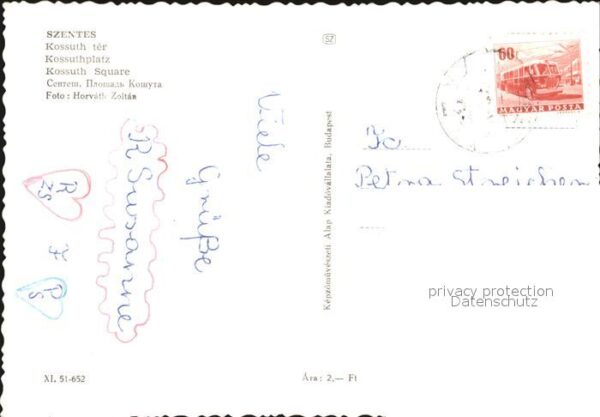 SZENTES
Kossuth tér
Kossuthplatz
Kossuth Square
Сентеш. Площадь Кошута
Foto: Horváth Zoltán
SZ
60f
MAGYAR POSTA
Viele
Grüße
R Susanne
R
ZS
F
P
S
Képzőművészeti Alap Kiadóvállalata, Budapest
Petra
privacy protection
Datenschutz
XI. 51-652
Ára: 2,— Ft